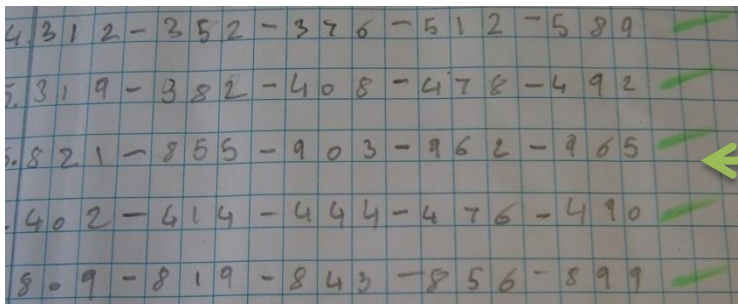 4. 312 - 352 - 376 - 512 - 589
5. 319 - 382 - 408 - 478 - 492
6. 821 - 855 - 903 - 962 - 965
402 - 414 - 444 - 476 - 490
809 - 819 - 843 - 856 - 899